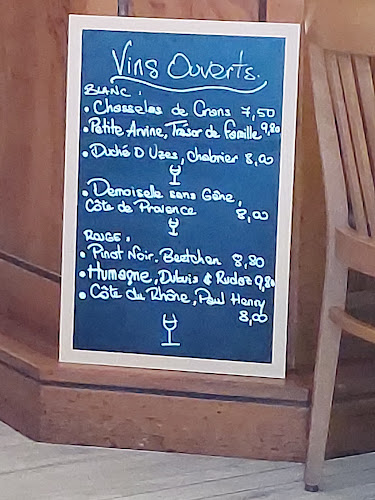 Vins Ouverts.
BLANC :
• Chasselas de Crans 7,50
• Petite Arvine, Trésor de Famille 9,80
• Duché D Uzes, Chabrier 8,00
• Demoiselle sans Gêne,
Côte de Provence 8,00
ROUGE :
• Pinot Noir. 8,80
• Humagne, Dubuis & Rudaz 9,80
• Côte du Rhône, Paul Henry
8,00